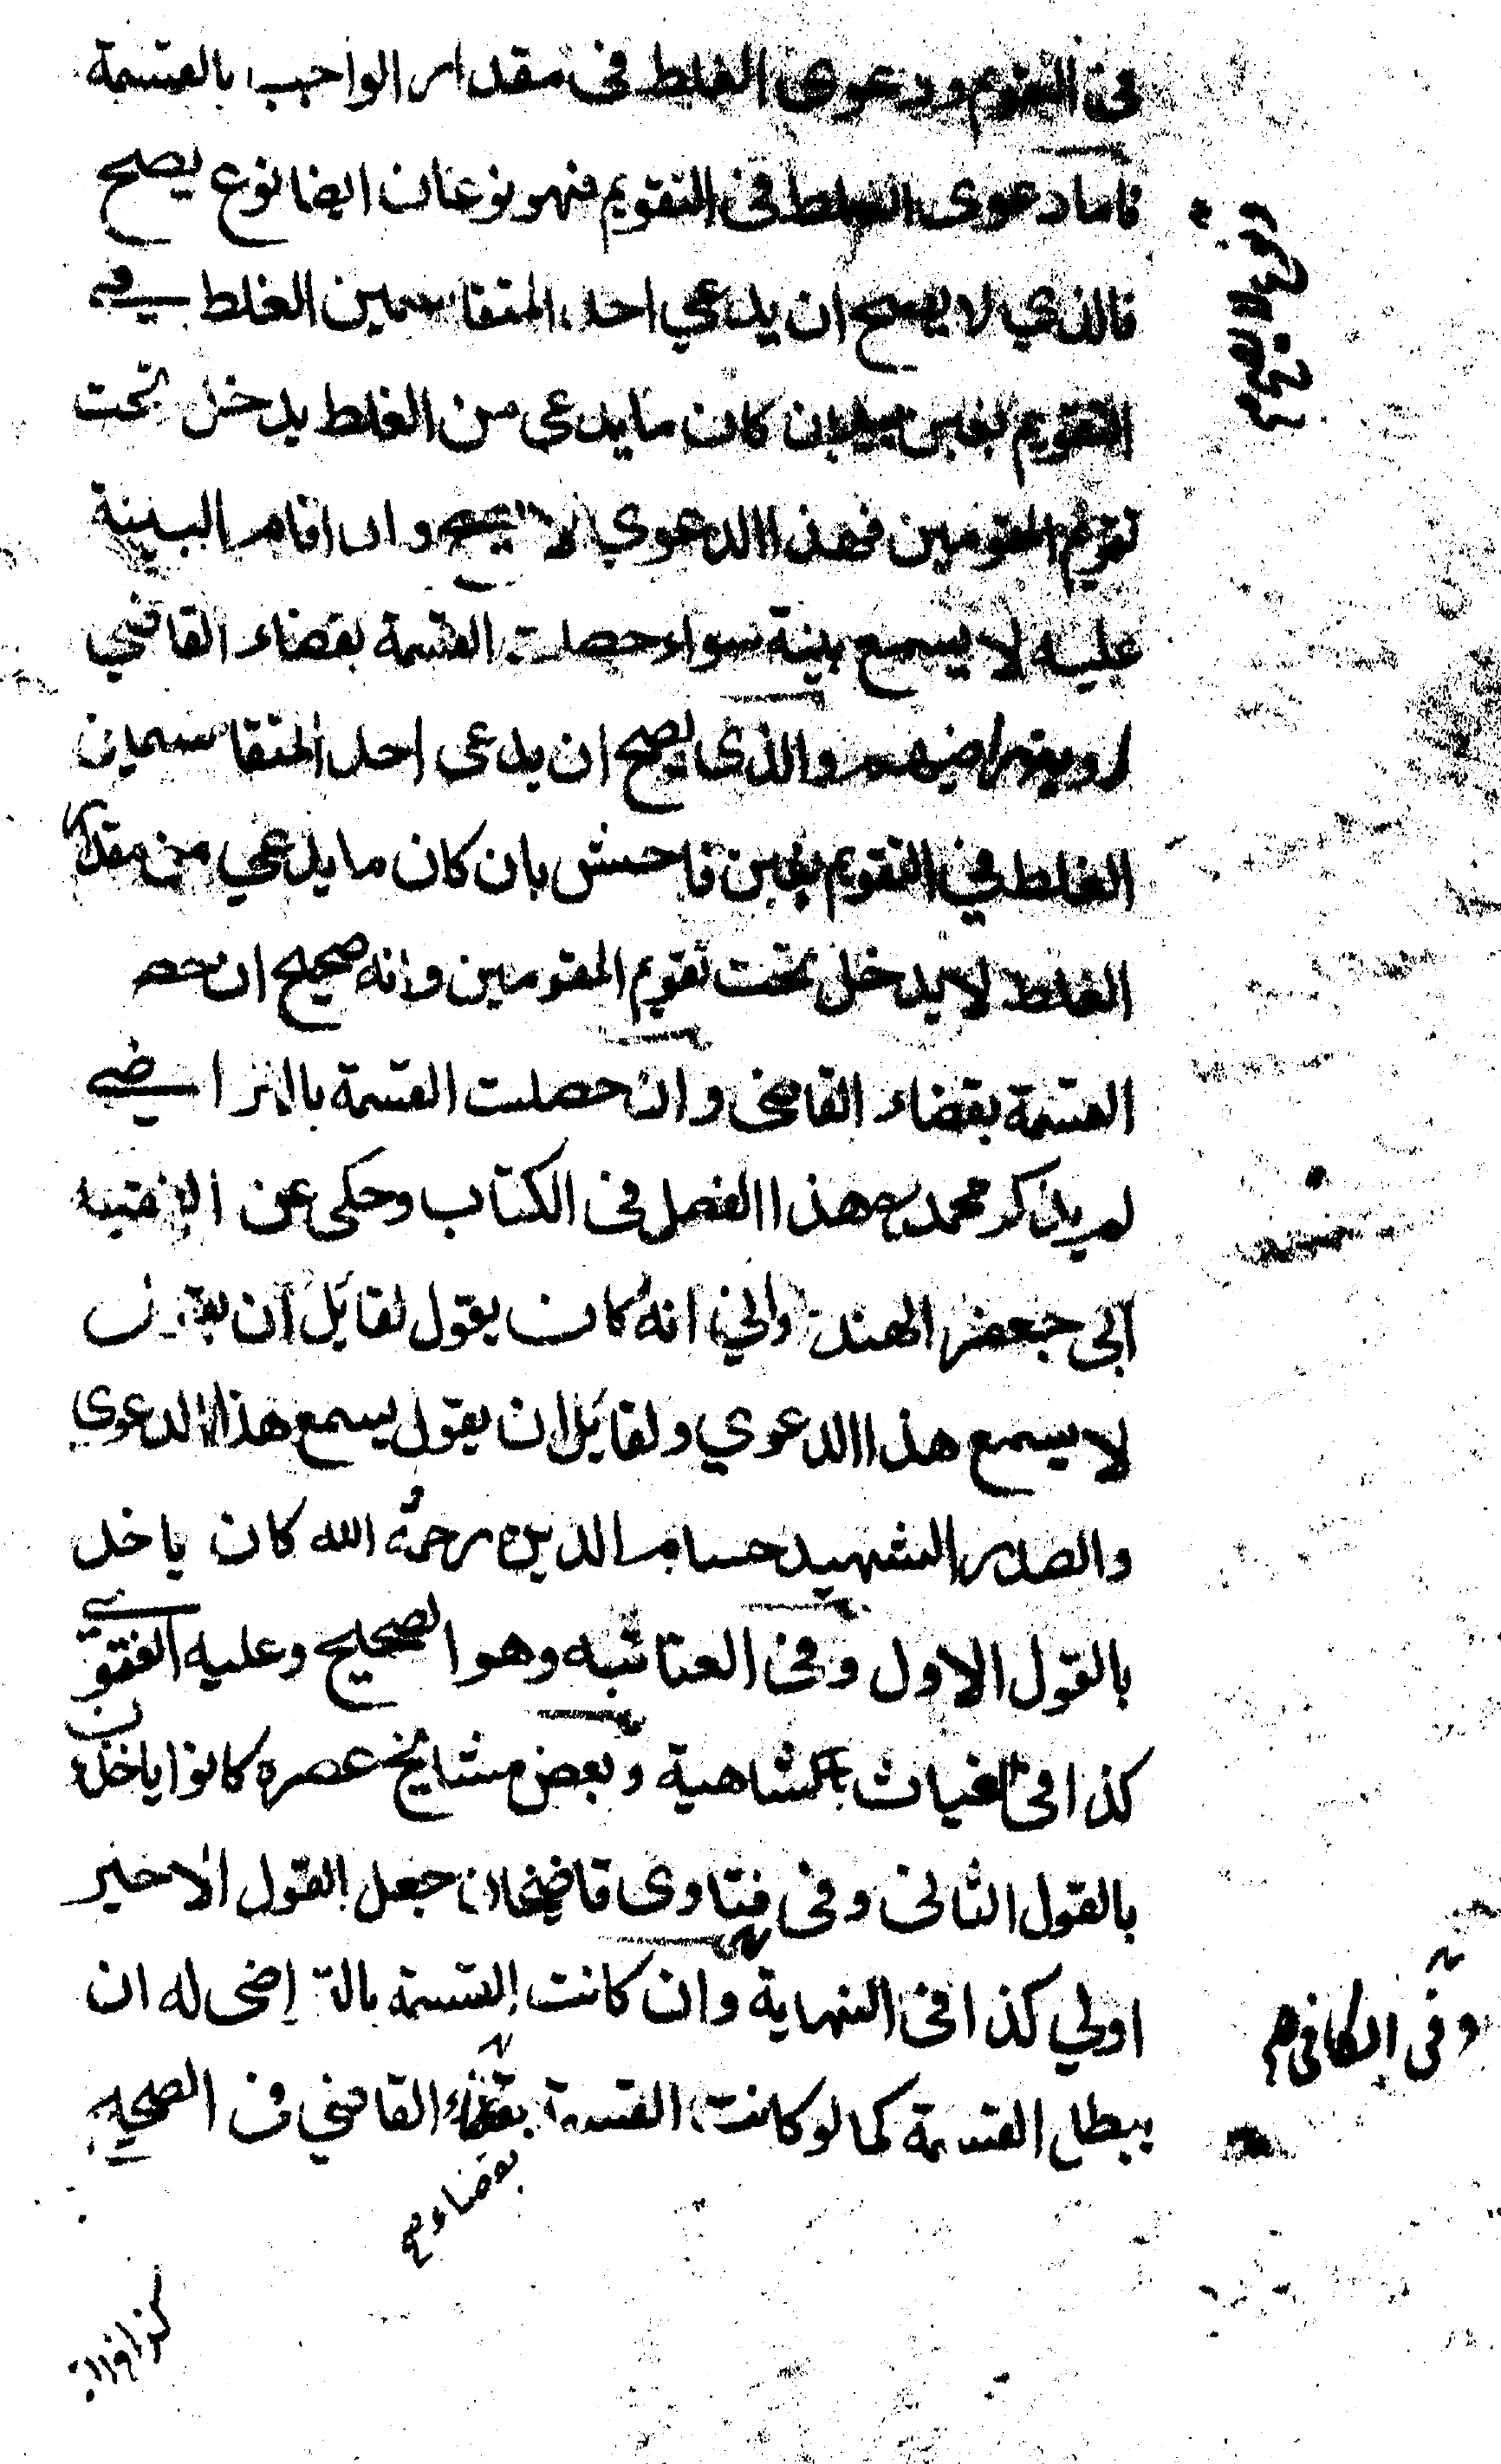 في التقويم ودعوى الغلط في مقدار الواجب بالقسمة
فاما دعوى الغلط في التقويم فهو نوعان ايضا نوع يصح
فالذي لا يصح ان يدعي احد المتقاسمين الغلط في
التقويم بغبن بان كان ما يدعي من الغلط يدخل تحت
تقويم المقومين فهذا الدعوي لا يصح وان اقام البينة
عليه لا يسمع بينة سواء حصلت القسمة بقضاء القاضي
او بتراضيهم والذى يصح ان يدعي احد المتقاسمين
الغلط في التقويم بغبن فاحش بان كان ما يدعي من مقدار
الغلط لا يدخل تحت تقويم المقومين وانه صحيح ان حصـ
القسمة بقضاء القاضي وان حصلت القسمة بالتراضي
لم يذكر محمد رح هذا الفصل في الكتاب وحكى عن الفقيه
ابي جعفر الهندواني انه كان يقول لقائل ان يقول
لا يسمع هذا الدعوي ولقائل ان يقول يسمع هذا الدعوى
والصدر الشهيد حسام الدين رحمه الله كان ياخذ
بالقول الاول وفي العتابيه وهو الصحيح وعليه الفتوى
كذا في الغياثية وبعض مشايخ عصره كانوا ياخذون
بالقول الثاني وفي فتاوى قاضيخان جعل القول الاخير
اولي كذا في النهاية وان كانت القسمة بالتراضى له ان
وفي الكافي م
يبطل القسمة كما لو كانت القسمة بقضاء القاضي في الصحيح
بقضاء